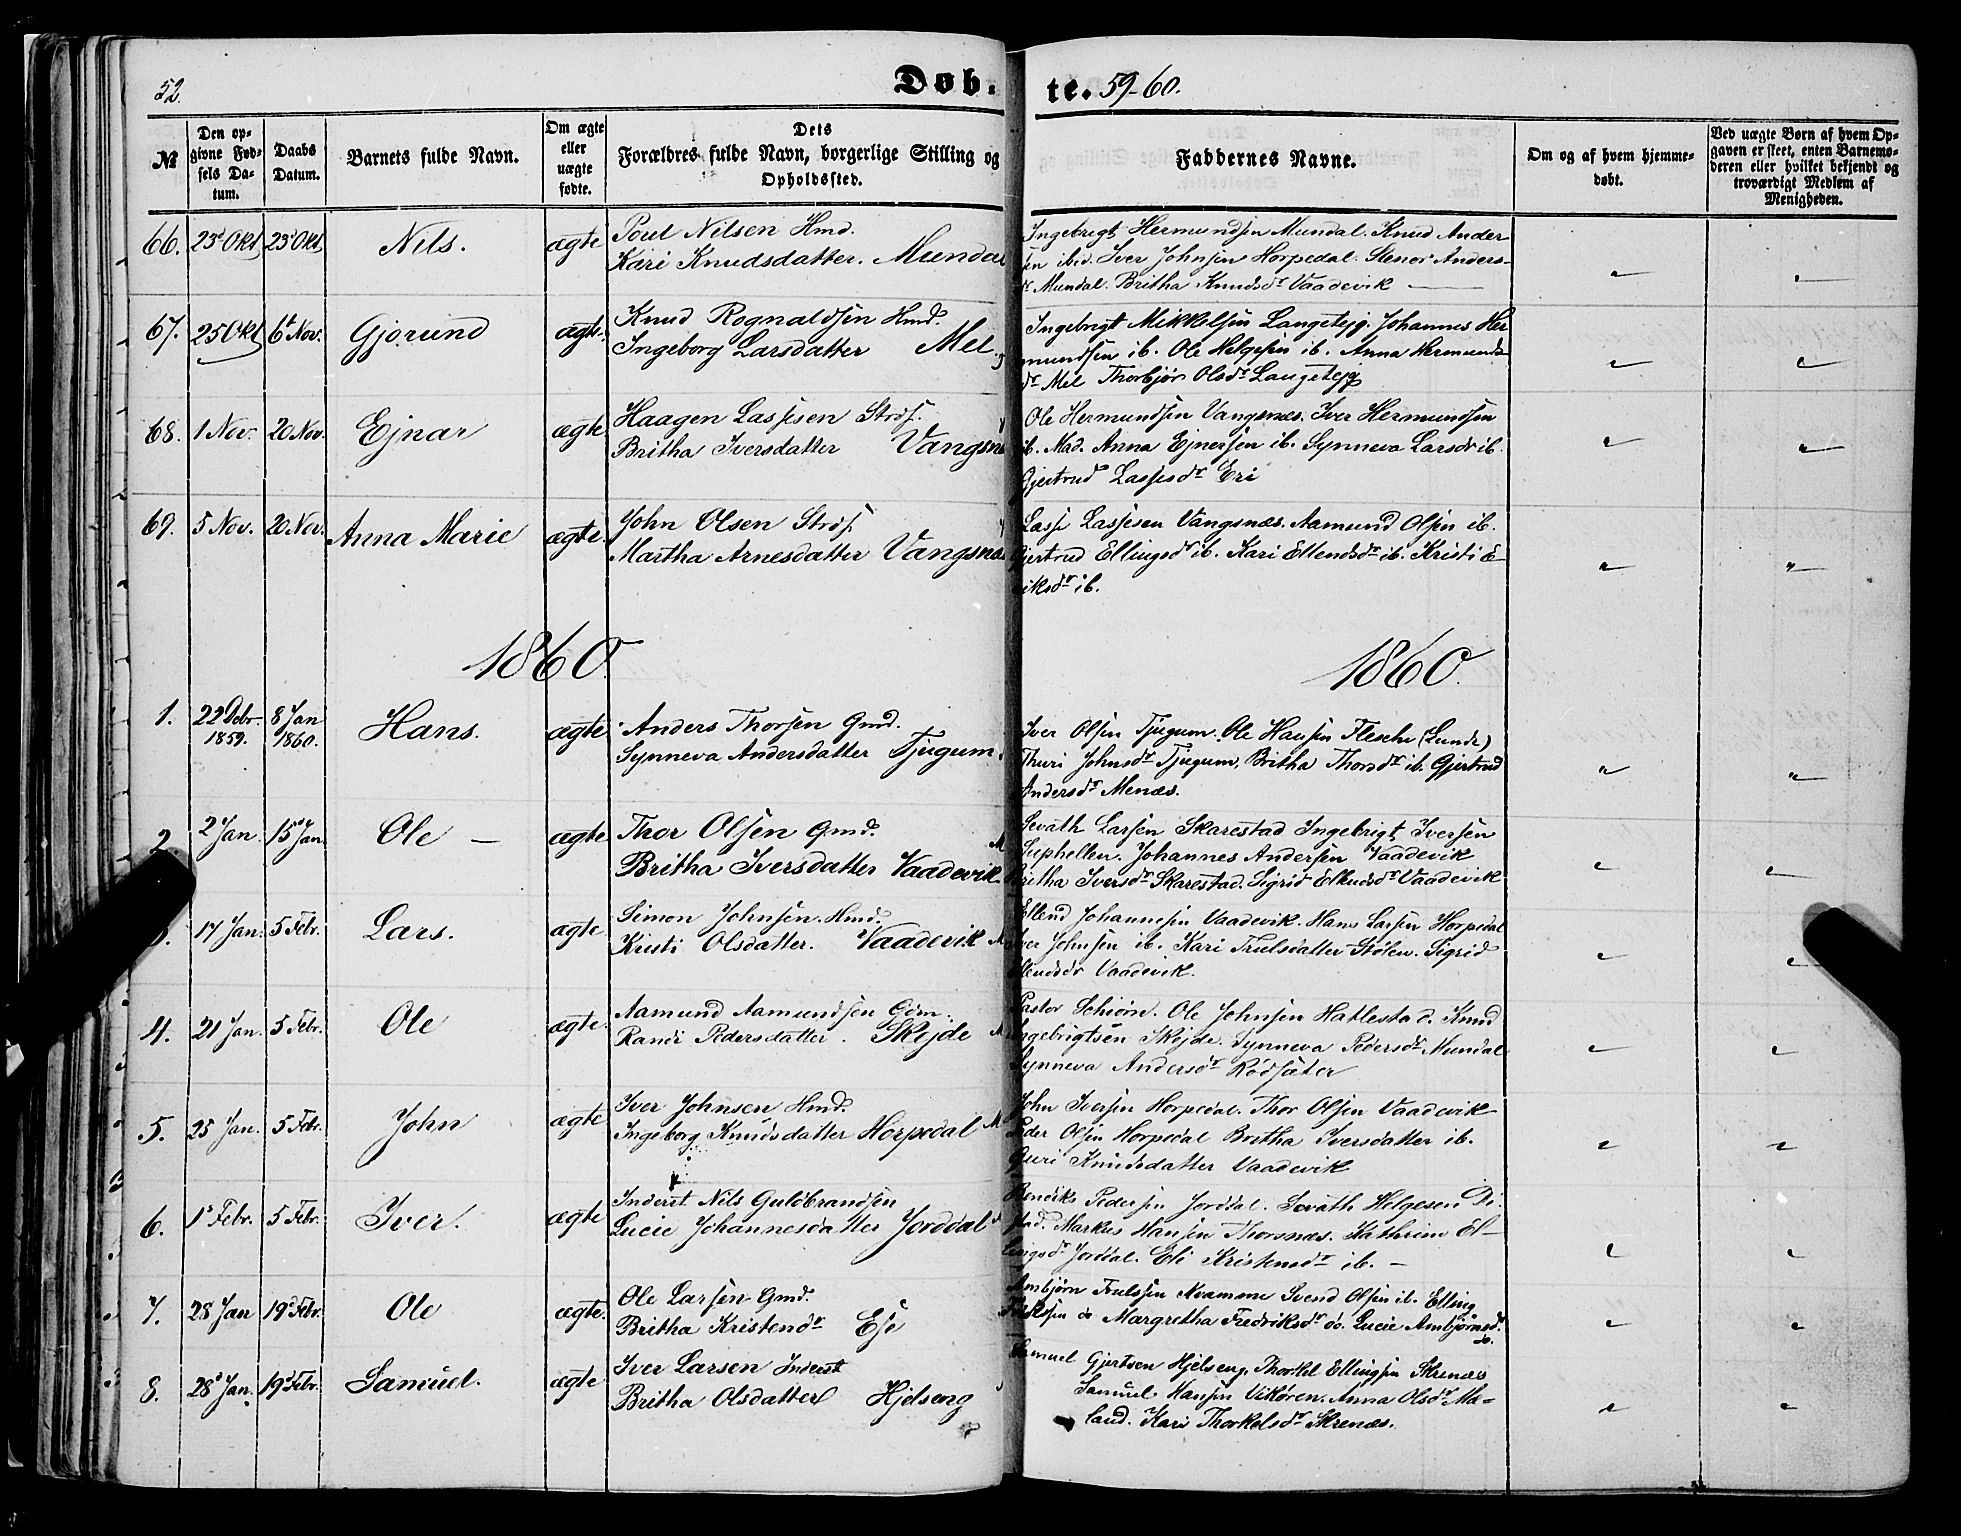 52.
Døb-
te. 59-60.
№
Den op-
givne Fød-
sels Da-
tum.
Daabs
Datum.
Barnets fulde Navn.
Om ægte
eller
uægte
fødte.
Dets
Forældres fulde Navn, borgerlige Stilling og
Opholdssted.
Faddernes Navne.
Om og af hvem hjemme-
døbt.
Ved uægte Børn af hvem Op-
gaven er skeet, enten Barnemo-
deren eller hvilket bekjendt og
troværdigt Medlem af
Menigheden.
66. 23d Okt 23d Okt Nils. ægte Poul Nilsen Hmd.
Kari Knudsdatter. Mundal
Ingebrigt Hermundsen Mundal. Knud Ander
sen ibid. Iver Johnsen Horpedal. Stenor Anders-
dr Mundal. Britha Knudsdr Vaadevik
67. 25 Okt 6t Nov. Gjørund ægte. Knud Rognaldsen Hmd.
Ingeborg Larsdatter Mel
Ingebrigt Mikkelsen Langetejg. Johannes Her
mundsen ib. Ole Helgesen ib. Anna Hermunds
dr Mel Thorbjør Olsdr Langetejg
68. 1 Nov. 20 Nov. Ejnar ægte. Haagen Lassesen Strds.
Britha Iversdatter Vangsnæs
Ole Hermundsen Vangsnæs. Iver Hermundsen
ib. Mad. Anna Ejnersen ib. Synneva Larsdr ib.
Gjertrud Lassesdr Eri
69. 5 Nov. 20 Nov. Anna Marie ægte. John Olsen Strds.
Martha Arnesdatter Vangsnæs
Lasse Lassesen Vangsnæs. Aamund Olsen ib.
Gjertrud Ellingsdr ib. Kari Ellendsdr ib. Kristi E-
riksdr ib.
1860. 1860.
1. 22 Debr. 8 Jan Hans. ægte Anders Thorsen Gmd.
1859. 1860. Synneva Andersdatter Tjugum.
Iver Olsen Tjugum. Ole Hansen Flesche (Lunde)
Thuri Johnsdr Tjugum, Britha Thorsdr ib. Gjertrud
Andersdr Menæs.
2. 2 Jan 15d Jan Ole — ægte Thor Olsen Gmd.
Britha Iversdatter Vaadevik
Sevath Larsen Skarestad Ingebrigt Iversen
Suphellen. Johannes Andersen Vaadevik
Britha Iversdr Skarestad. Sigrid Ellendsdr Vaadevik
3. 17 Jan. 5 Febr. Lars. ægte. Simon Johnsen. Hmd.
Kristi Olsdatter. Vaadevik
Ellend Johannesen Vaadevik. Hans Larsen Horpedal
Iver Johnsen ib. Kari Trulsdatter Stölen. Sigrid
Ellendsdr Vaadevik.
4. 21 Jan. 5 Febr. Ole ægte. Aamund Aamundsen
Randi Pedersdatter. Skejde
Pastor Schiörn. Ole Johnsen Hatlestad. Knud
Ingebrigtsen Skejde. Synneva Pedersdr Mundal
Synneva Andersdr Rödsæter
5. 25 Jan. 5 Febr. John ægte Iver Johnsen Hmd.
Ingeborg Knudsdatter Horpedal
John Iversen Horpedal. Thor Olsen Vaadevik
Peder Olsen Horpedal Britha Iversdatter ib.
Guri Knudsdatter Vaadevik
6. 1t Febr. 5 Febr. Iver. ægte Inderst Nils Guldbrandsen
Lucie Johannesdatter Jorddal
Bendiks Pedersen Jorddal. Sevath Helgesen Di-
stad. Markus Hansen Thorsnæs. Kathrine El-
lingsdr Jorddal. Eli Kristensdr ib. —
7. 28 Jan 19d Febr. Ole ægte. Ole Larsen Gmd.
Britha Kristendr Ese
Ambjörn Trulssen Kvamme Svend Olsen ib. Elling
do Margretha Fredriksdr do. Lucie Ambjörnsdr
do.
8. 28d Jan. 19d Febr. Samuel. ægte Iver Larsen Inderst
Britha Olsdatter Hjelseng
Samuel Gjertsen Hjelseng. Thorkel Ellingsen Skrenæs
Samuel Hansen Vikören. Anna Olsdr Mæ-
land. Kari Thorkelsdr Skrenæs.